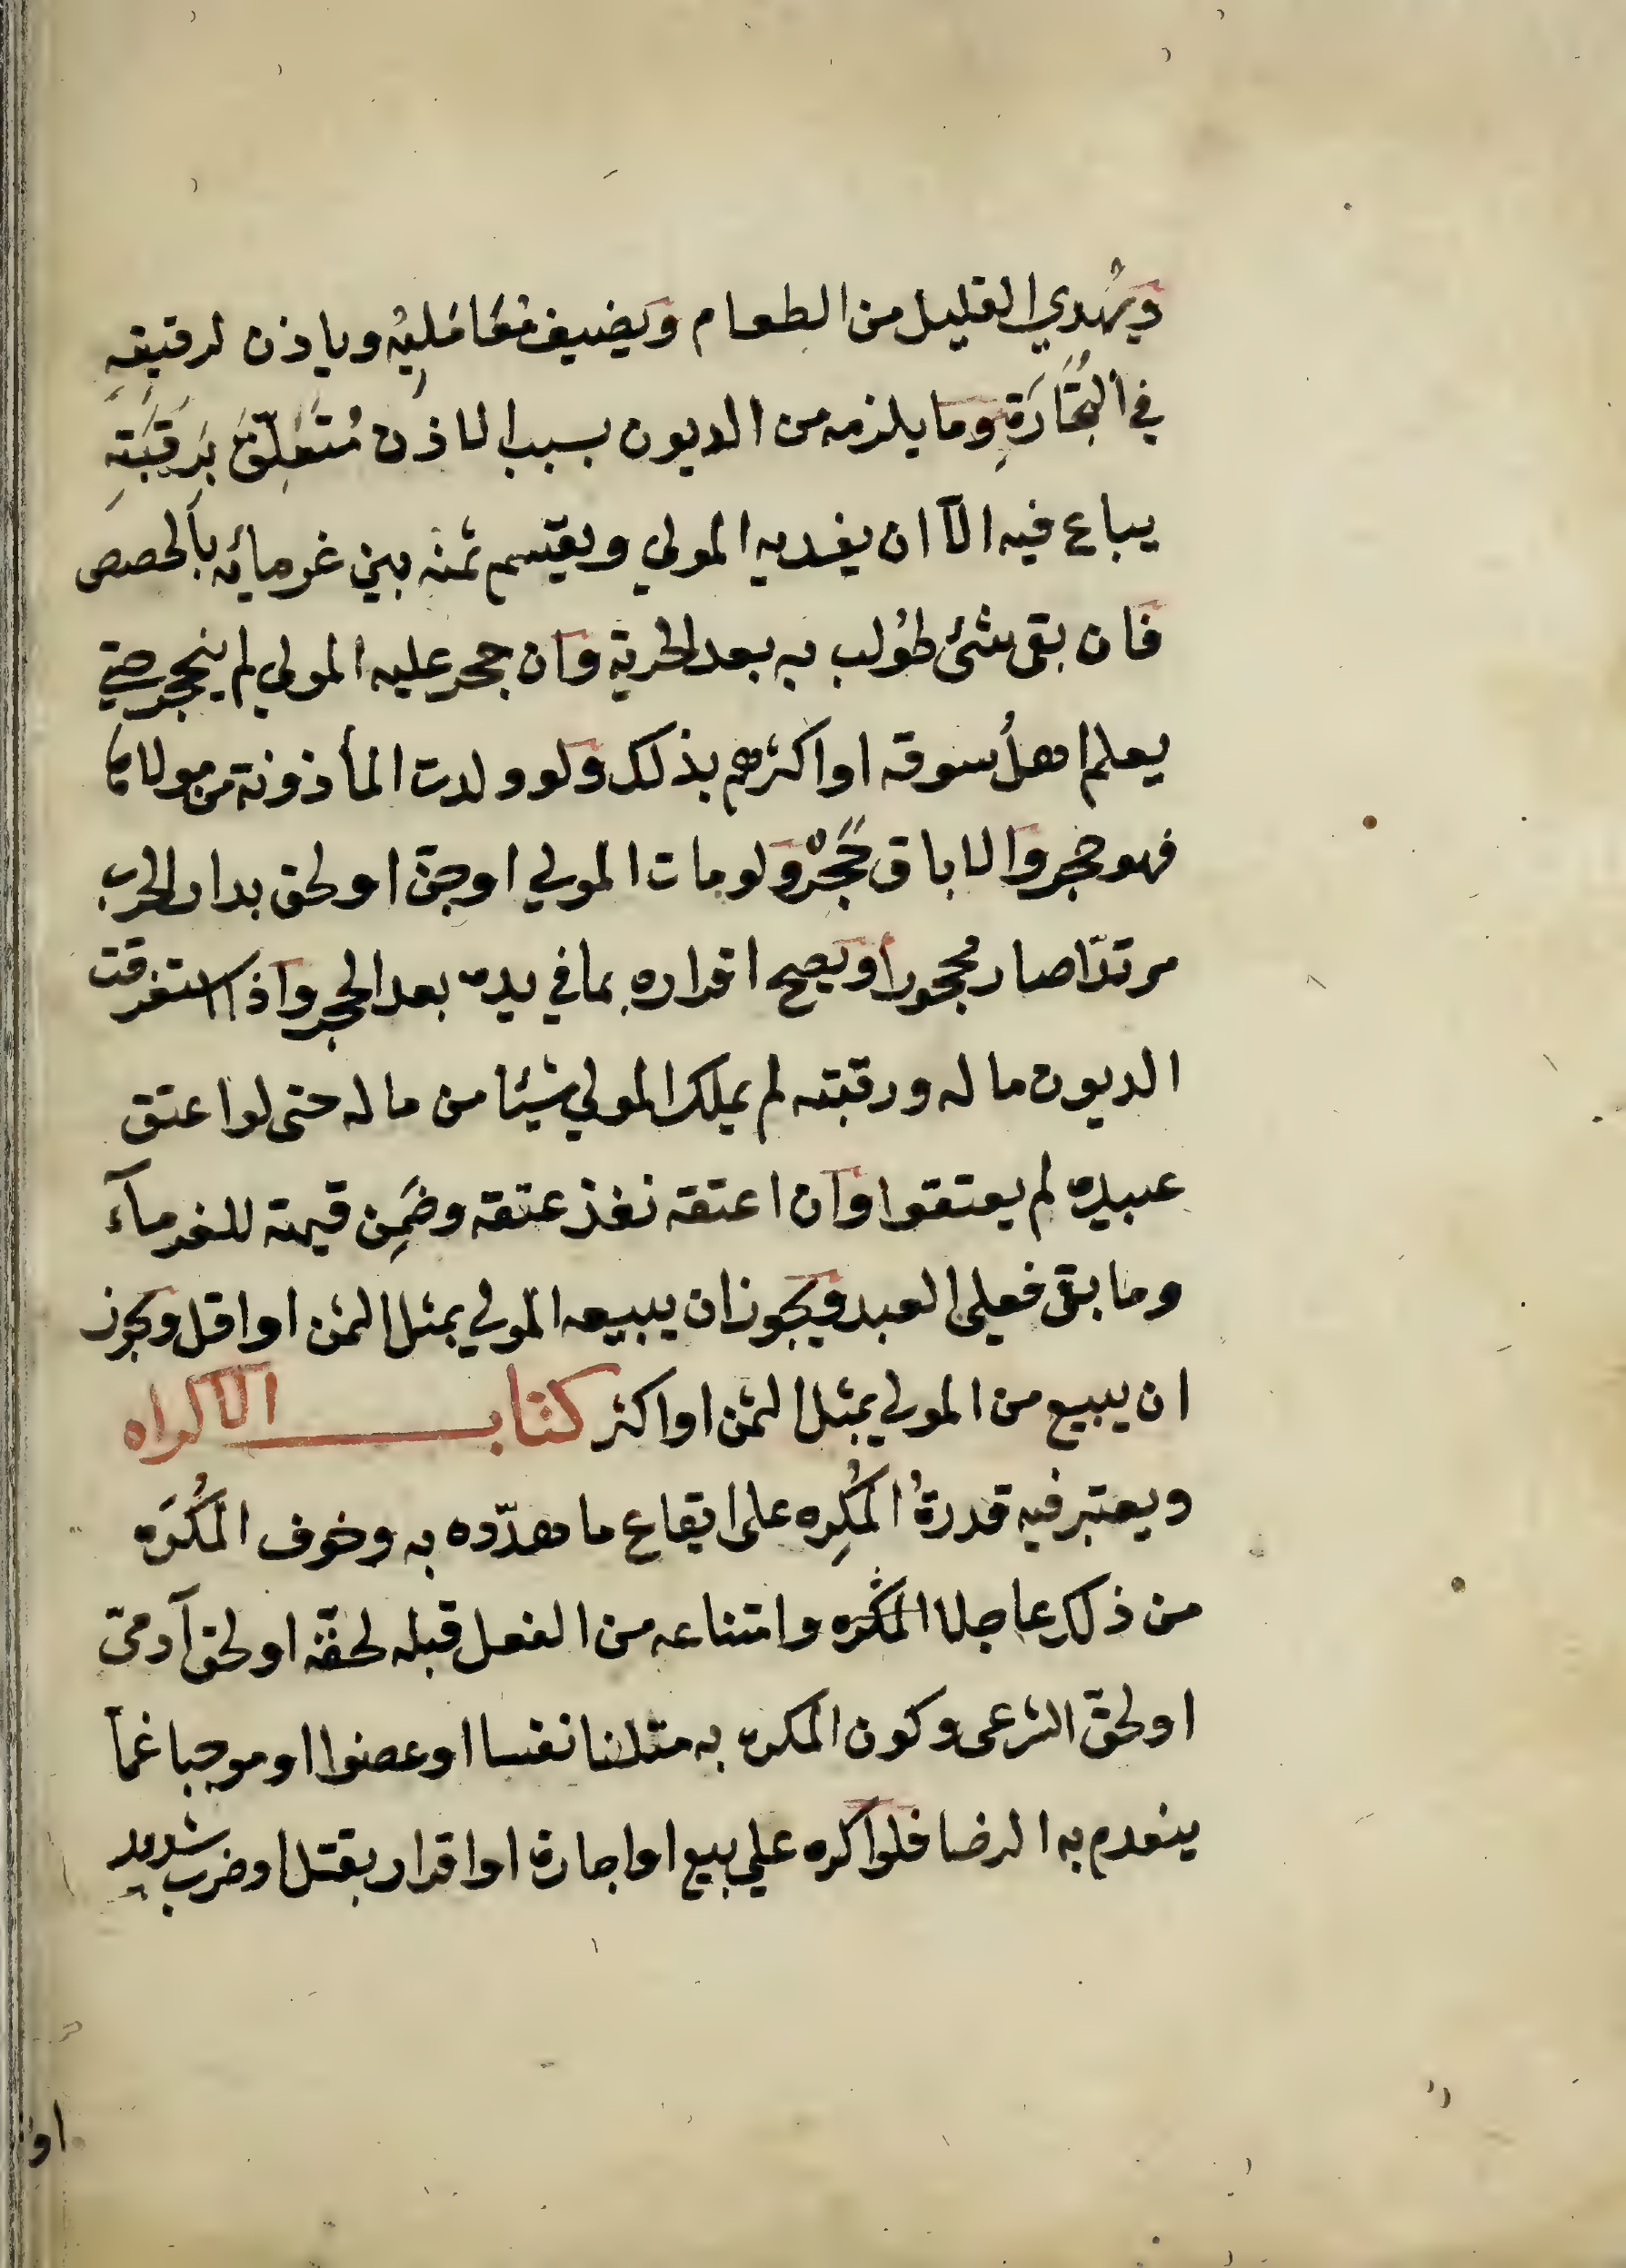 ويُهْدي القليل من الطعام ويضيف مُعَامُليْه وياذن لرقيقهِ
في التِجَّارَةِ وما يلزمه من الديون بسبب الاذن مُتَعَلّقٌ بِرَقبَتِهِ
يباع فيه الّا ان يفديه المولي ويقسم ثمنه بين غرمائه بالحصص
فان بقى شئ طُولب به بعد الحرية وان حجر عليه المولي لم ينحجر حتي
يعلم اهلُ سوقه او اكثرهم بذلك ولو ولدت المأذونة من مولاها
فهو حجر والاباق حَجْرٌ ولو مات المولي او جنّ او لحق بدار الحرب
مرتدّا صار محجورا ويصح اقراره بما في يده بعد الحجر واذا استغرقت
الديون ماله ورقبته لم يملك المولي شيئا من ماله حتى لو اعتق
عبيده لم يعتقوا وان اعتقه نفذ عتقه وضَمِن قيمته للغرمآء
وما بقى فعلى العبد ويجوز ان يبيعه المولي بمثل الثمن او اقل ويجوز
ان يبيع من المولي بمثل الثمن او اكثر كتاب الاكراه
ويعتبر فيه قدرةُ المُكْرِه على ايقاع ما هدّده به وخوف المُكْرَه
من ذلك عاجلا المكره وامتناعه من الفعل قبله لحقّه او لحق آدمىّ
او لحقّ الشرعى وكون المكره به متلفا نفسا او عضوا او موجبا غمّا
ينعدم به الرضا فلو اكره علي بيع او اجارة او اقرار بقتل او ضرب شديد
او